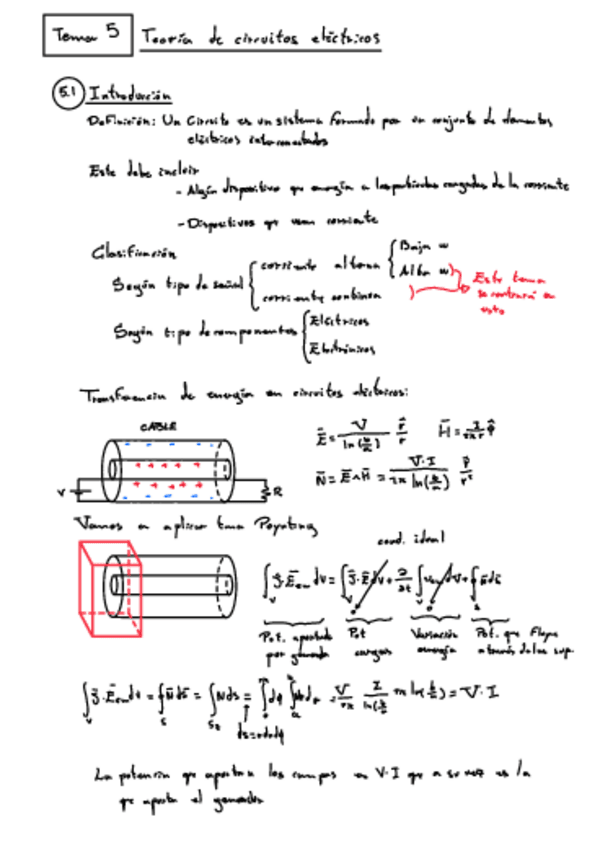 Tema 5 Teoría de circuitos eléctricos
5.1 Introducción
Definición: Un Circuito es un sistema formado por un conjunto de elementos
eléctricos interconectados
Este debe incluir
- Algún dispositivo que energía a las partículas cargadas de la corriente
- Dispositivos que usan corriente
Clasificación
Según tipo de señal { corriente alterna { Baja w
Alta w
corriente continua
Este tema
se centrará en
esto
Según tipo de componentes { Eléctricos
Electrónicos
Transferencia de energía en circuitos eléctricos:
CABLE
V
R
Ē = V / ln(b/a) r̂ / r H̄ = I / 2πr φ̂
N̄ = Ē ∧ H̄ = V·I / 2π ln(b/a) r̂ / r²
Vamos a aplicar Poynting
cond. ideal
Pot. aportada
por generador
Pot
cargas
Variación
energía
Pot. que fluye
a través de las sup.
= V·I
La potencia que aportan los campos es V·I que a su vez es la
que aporta el generador